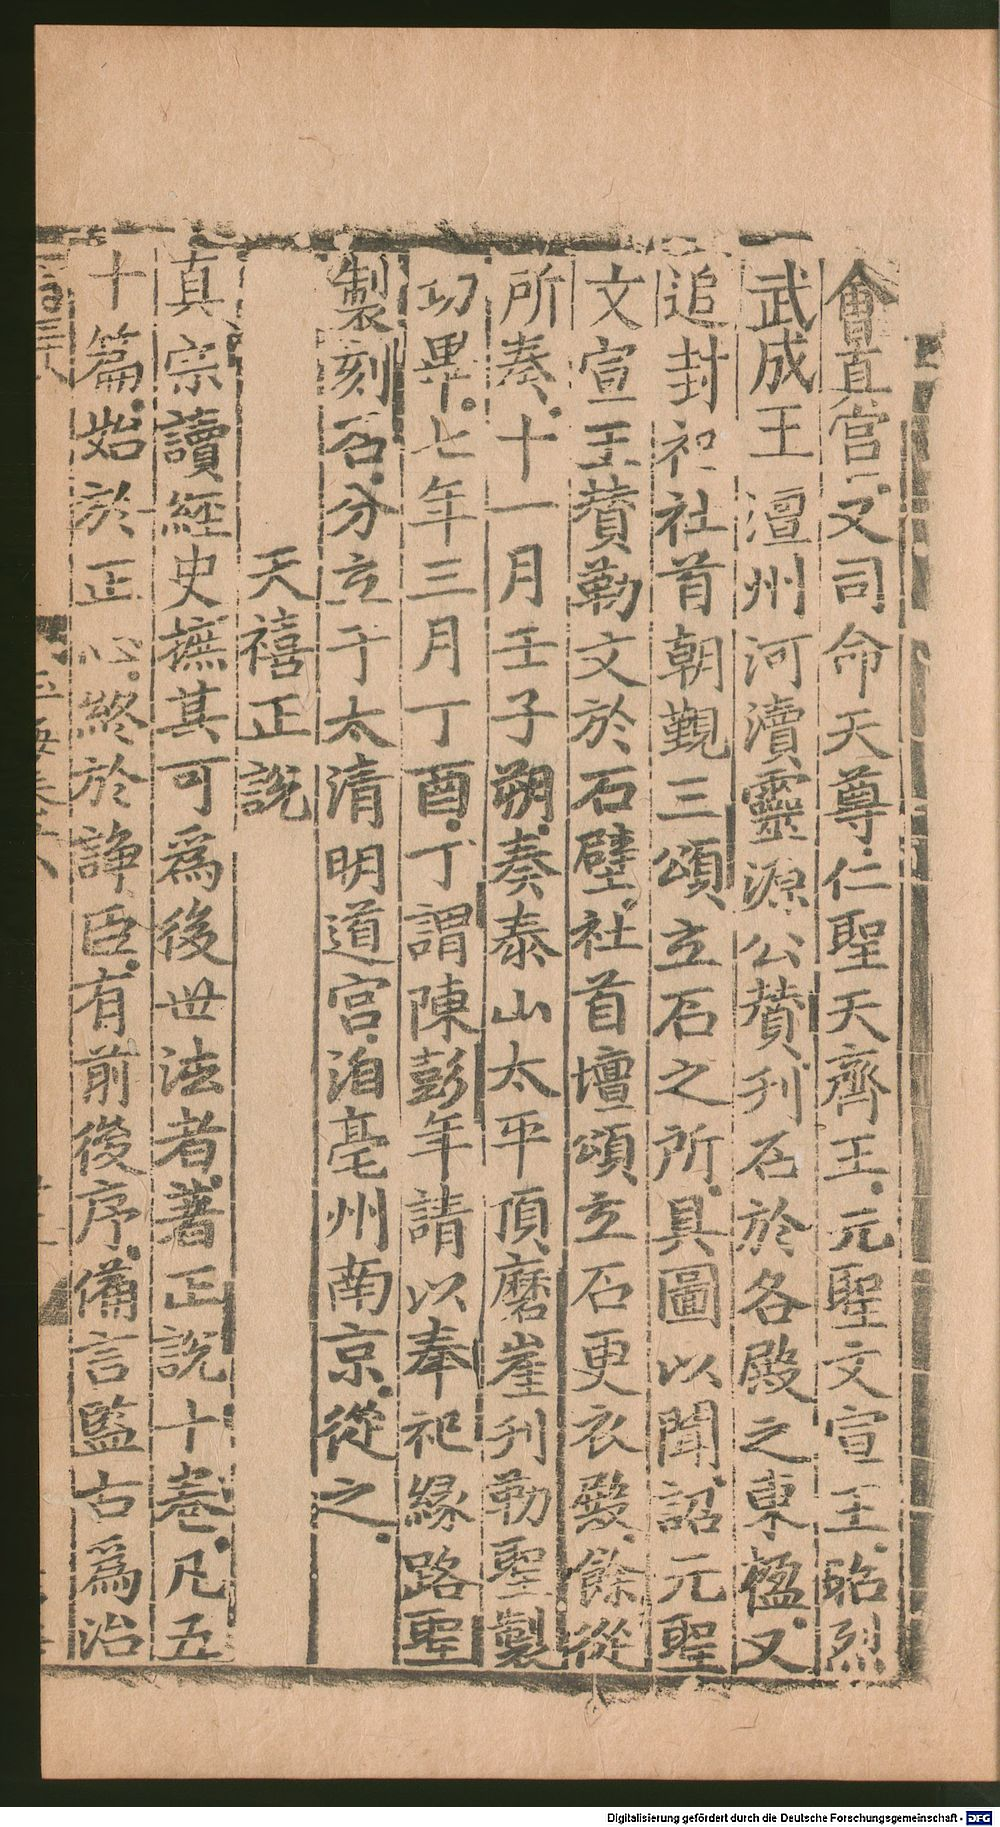 會眞官又司命天尊仁聖天齊王元聖文宣王昭烈
武成王澶州河瀆靈源公贊刋石於各殿之東楹又
追封祀社首朝覲三頌立石之所具圖以聞詔元聖
文宣王贊勒文於石壁社首壇頌立石更衣殿餘從
所奏十一月壬子朔奏泰山太平頂磨崖刋勒聖製
功畢七年三月丁酉丁謂陳彭年請以奉祀緣路聖
製刻石分立于太清明道宮洎亳州南京從之
天禧正說
真宗讀經史摭其可爲後世法者著正說十卷凡五
十篇始於正心終於諍臣有前後序備言監古爲治
Digitalisierung gefördert durch die Deutsche Forschungsgemeinschaft - DFG